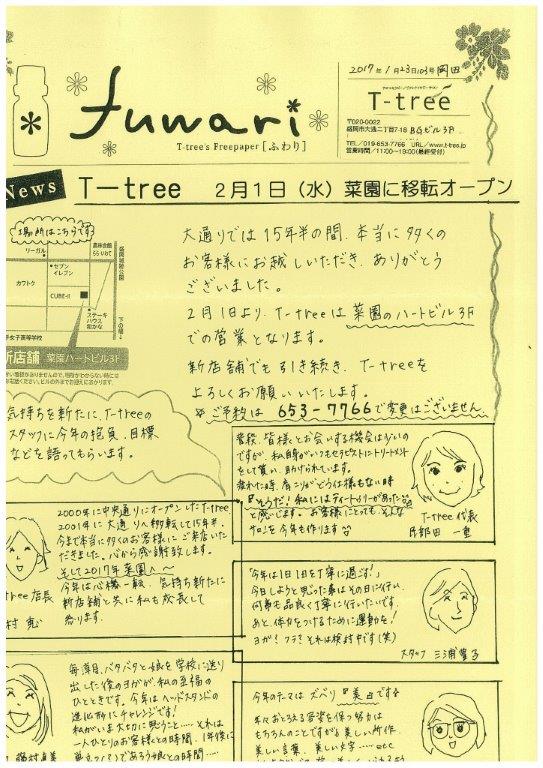 2017年1月23日 103号 岡田
fuwari
T-tree's Freepaper [ふわり]
T-tree
〒020-0022
盛岡市大通二丁目7-18 BGビル3F
TEL/019-653-7766 URL/www.t-tree.jp
営業時間/11:00~19:00(最終受付)
News
T-tree 2月1日(水)菜園に移転オープン
場所はこちらです
リーガル
セブン
イレブン
カワトク
CUBE-Ⅱ
ステーキ
ハウス
和かな
新店舗 菜園ハートビル3F
大通りでは15年半の間、本当に多くの
お客様にお越しいただき、ありがとう
ございました。
2月1日より、T-treeは菜園のハートビル3F
での営業となります。
新店舗でも引き続き、T-treeを
よろしくお願いいたします。
※ご予約は 653-7766で変更はございません
気持ちを新たに、T-treeの
スタッフに今年の抱負、目標
などを語ってもらいます。
普段、皆様とお会いする機会は少ないの
ですが、私自身がいつもセラピストにトリートメント
をして貰い、助けられています。
疲れた時、肩こりがどうは様もない時
『そうだ!私にはティートゥリーがあった』
と感じます。お客様にとっても、そんな
サロンを今年も作ります
T-tree代表
2000年に中央通りにオープンしたT-tree
2001年に大通りへ移転して15年半、
今まで本当に多くのお客様にご来店いた
だきました。心から感謝致します。
そして2017年菜園へ~
今年は心機一転、気持ち新たに
新店舗と共に私も成長して
参ります。
tree店長
「今年は1日1日を丁寧に過ごす!」
今日しようと思った事はその日に行い、
何事も品良く丁寧に行いたいです。
あと、体力をつけるために運動を!
ヨガ?フラ?それは検討中です(笑)
スタッフ 三浦
毎澤目、バタバタと娘を学校に送り
出した後のヨガが私の至福の
ひとときです。今年はヘッドスタンドの
進化形にチャレンジです!
私がいま大切に思うこと……それは
一人ひとりのお客様との時間、1年後に
今年のテーマはズバリ『美』です
年々おとろえる容姿を保つ努力は
もちろんのことですが美しい所作
美しい言葉、美しい文字……etc